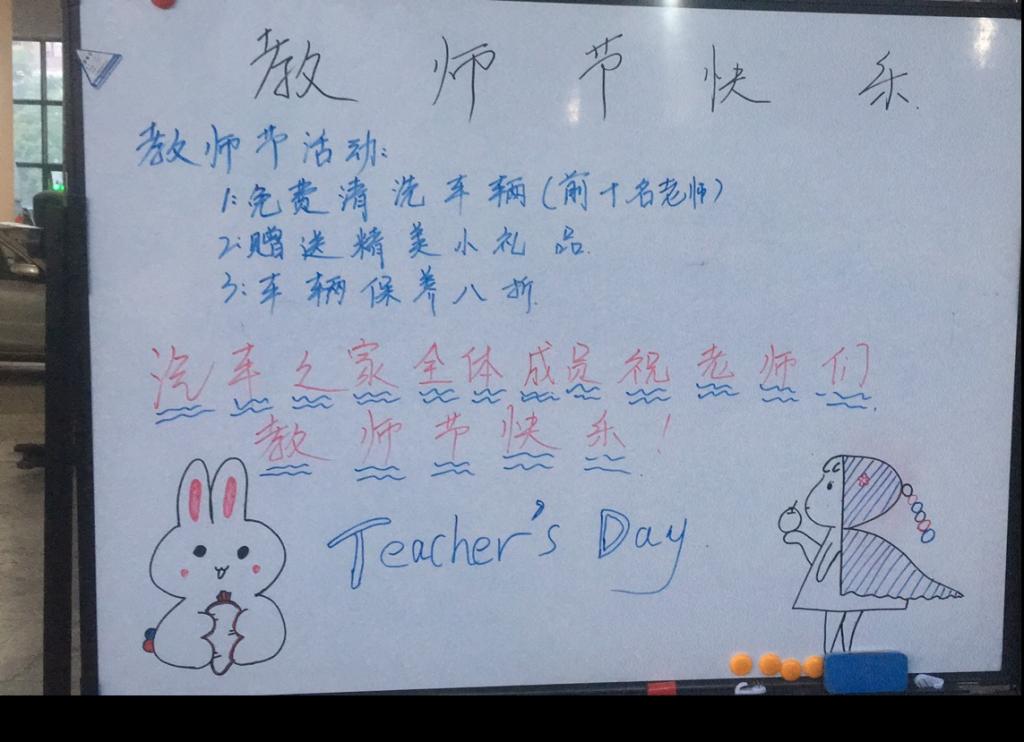 教师节快乐
教师节活动:
1:免费清洗车辆(前十名老师)
2:赠送精美小礼品.
3:车辆保养八折.
汽车之家全体成员祝老师们
教师节快乐!
Teacher's Day